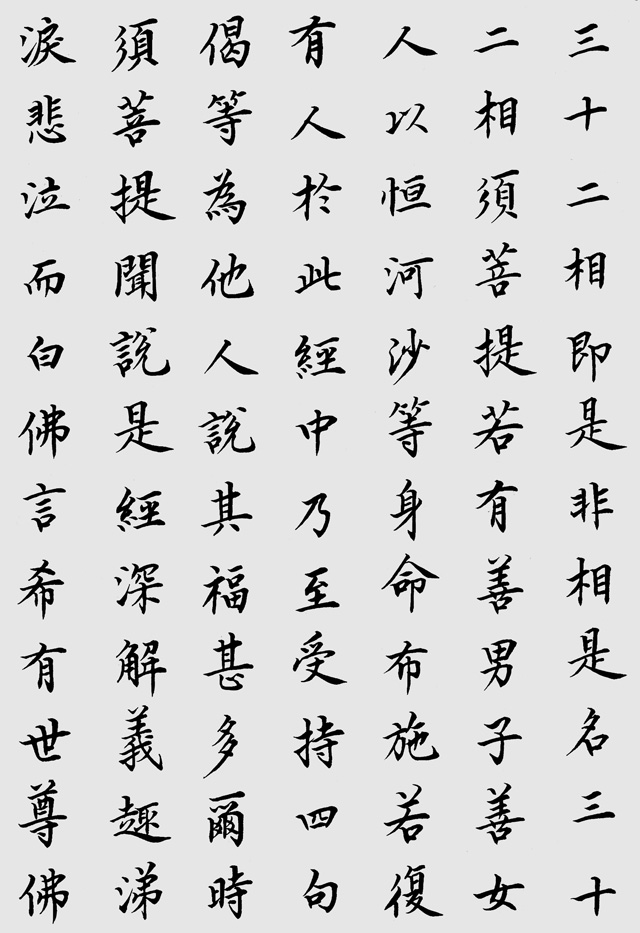 三十二相即是非相是名三十
二相須菩提若有善男子善女
人以恒河沙等身命布施若復
有人於此經中乃至受持四句
偈等為他人說其福甚多爾時
須菩提聞說是經深解義趣涕
淚悲泣而白佛言希有世尊佛